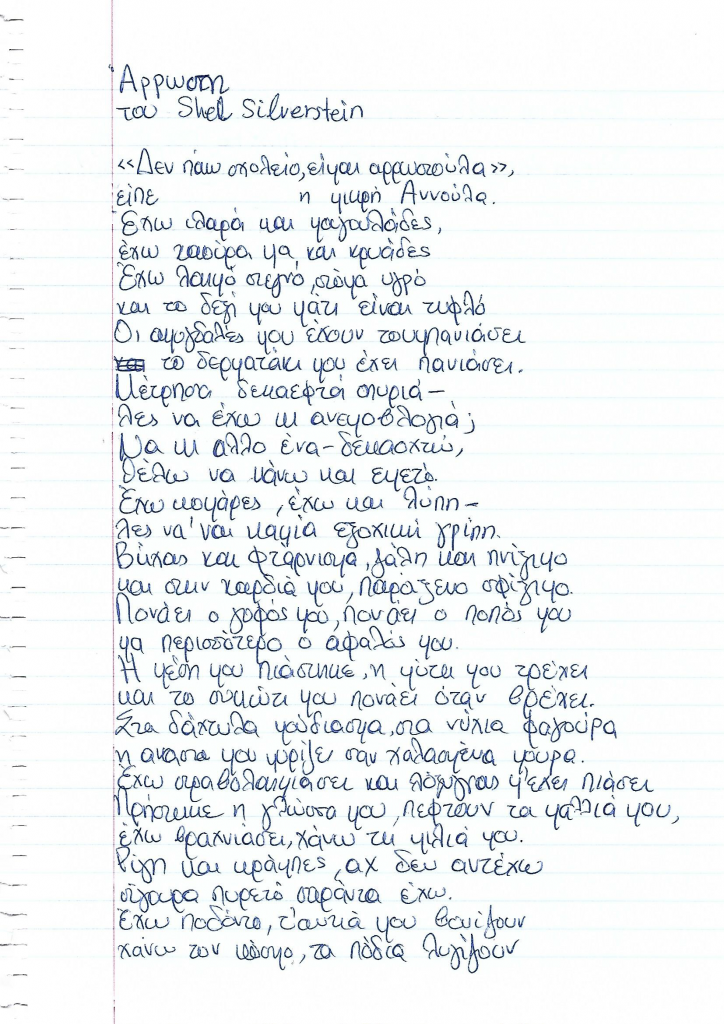 Άρρωστη
του Shel Silverstein
«Δεν πάω σχολείο, είμαι αρρωστούλα»,
είπε η μικρή Αννούλα.
Έχω ιλαρά και μαγουλάδες,
έχω τασούρα μα, και κρυάδες
Έχω λαιμό στεγνό, στόμα υγρό
και το δεξί μου μάτι είναι τυφλό
Οι αμυγδαλές μου έχουν τουμπανιάσει
το δερματάκι μου έχει πανιάσει.
Μέτρησα δεκαεφτά σπυριά –
λες να έχω κι ανεμοβλογιά;
Να κι αλλο ένα – δεκαοχτώ,
θέλω να κάνω και εμετό.
Έχω κομάρες, έχω και λύπη –
λες να 'ναι καμία εξοχική γρίπη.
Βήχας και φτάρνισμα, ζάλη και πνίξιμο
και στην καρδιά μου, παράξενο σφίξιμο.
Πονάει ο γοφός μου, πονάει ο ποπός μου
μα περισσότερο ο αφαλός μου.
Η μέση μου πιάστηκε, η μύτη μου τρέχει
και το συκώτι μου πονάει όταν βρέχει.
Στα δάχτυλα μούδιασμα, στα νύχια φαγούρα
η ανασα μου μυρίζει σαν χαλασμένα μούρα.
Έχω στραβολαιμιάσει και λόξυγγας μ' έχει πιάσει
Πρήστηκε η γλώσσα μου, πέφτουν τα μαλλιά μου,
έχω βραχνιάσει, χάνω τη μιλιά μου.
Ρίγη και κράμπες, αχ δεν αντέχω
σίγουρα πυρετό σαράντα έχω.
Έχω πονόδοντο, τ'αυτιά μου βουίζουν
χάνω τον κόσμο, τα πόδια λυγίζουν